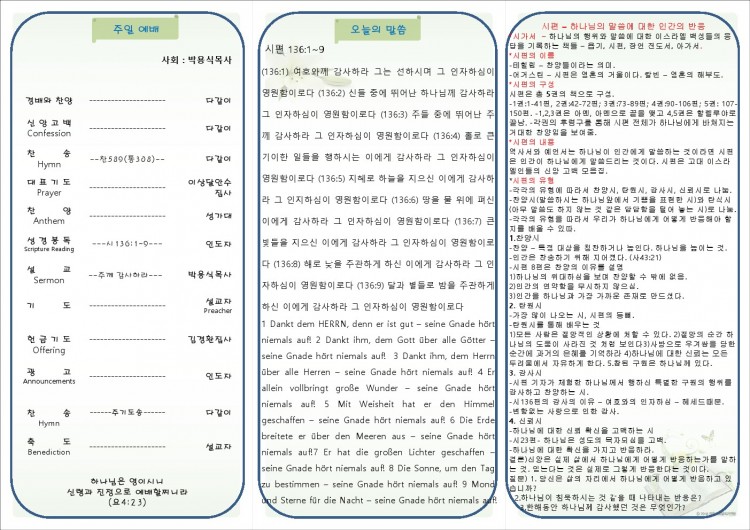 주일 예배
사회 : 박용식목사
경배와 찬양 ------------------ 다같이
신앙고백 ------------------ 다같이
Confession
찬 송 --찬589(통308)-- 다같이
Hymn
대표기도 ------------------ 이상달안수
Prayer 집사
찬 양 ------------------ 성가대
Anthem
성경봉독 ---시136:1-9--- 인도자
Scripture Reading
설 교 --주께 감사하라--- 박용식목사
Sermon
기 도 ------------------ 설교자
Preacher
헌금기도 ------------------ 김경환집사
Offering
광 고 ------------------ 인도자
Announcements
찬 송 ------주기도송------ 다같이
Hymn
축 도 ------------------ 설교자
Benediction
하나님은 영이시니
신령과 진정으로 예배할찌니라
(요4:23)
오늘의 말씀
시편 136:1~9
(136:1) 여호와께 감사하라 그는 선하시며 그 인자하심이
영원함이로다 (136:2) 신들 중에 뛰어난 하나님께 감사하라
그 인자하심이 영원함이로다 (136:3) 주들 중에 뛰어난 주
께 감사하라 그 인자하심이 영원함이로다 (136:4) 홀로 큰
기이한 일들을 행하시는 이에게 감사하라 그 인자하심이 영
원함이로다 (136:5) 지혜로 하늘을 지으신 이에게 감사하
라 그 인자하심이 영원함이로다 (136:6) 땅을 물 위에 펴신
이에게 감사하라 그 인자하심이 영원함이로다 (136:7) 큰
빛들을 지으신 이에게 감사하라 그 인자하심이 영원함이로
다 (136:8) 해로 낮을 주관하게 하신 이에게 감사하라 그 인
자하심이 영원함이로다 (136:9) 달과 별들로 밤을 주관하게
하신 이에게 감사하라 그 인자하심이 영원함이로다
1 Dankt dem HERRN, denn er ist gut – seine Gnade hört
niemals auf! 2 Dankt ihm, dem Gott über alle Götter –
seine Gnade hört niemals auf! 3 Dankt ihm, dem Herrn
über alle Herren – seine Gnade hört niemals auf! 4 Er
allein vollbringt große Wunder – seine Gnade hört
niemals auf! 5 Mit Weisheit hat er den Himmel
geschaffen – seine Gnade hört niemals auf! 6 Die Erde
breitete er über den Meeren aus – seine Gnade hört
niemals auf!7 Er hat die großen Lichter geschaffen –
seine Gnade hört niemals auf! 8 Die Sonne, um den Tag
zu bestimmen – seine Gnade hört niemals auf! 9 Mond
und Sterne für die Nacht – seine Gnade hört niemals auf!
시편 – 하나님의 말씀에 대한 인간의 반응
*시가서 – 하나님의 행위와 말씀에 대한 이스라엘 백성들의 응
답을 기록하는 책들 – 욥기, 시편, 잠언 전도서, 아가서.
*시편의 이름
-테힐림 – 찬양들이라는 의미.
-어거스틴 – 시편은 영혼의 거울이다. 칼빈 – 영혼의 해부도.
*시편의 구성
시편은 총 5권의 책으로 구성.
-1권:1-41편, 2권:42-72편; 3권:73-89편; 4권:90-106편; 5권: 107-
150편. -1,2,3권은 아멘, 아멘으로 끝을 맺고 4,5권은 할렐루야로
끝남. -각권의 후렴구를 통해 시편 전체가 하나님에게 바쳐지는
거대한 찬양임을 보여줌.
*시편의 내용
역사서와 예언서는 하나님이 인간에게 말씀하는 것이라면 시편
은 인간이 하나님에게 말씀드리는 것이다. 시편은 고대 이스라
엘인들의 신앙 고백 모음집.
*시편의 유형
-각각의 유형에 따라서 찬양시, 탄원시, 감사시, 신뢰시로 나눔.
-찬양시(말씀하시는 하나님 앞에서 기쁨을 표현한 시)와 탄식시
(아무 말씀도 하지 않는 것 같은 답답함을 털어 놓는 시)로 나눔.
-각각의 유형을 따라서 우리가 하나님에게 어떻게 반응해야 할
지를 배울 수 있다.
1.찬양시
-찬양 – 특정 대상을 칭찬하거나 높인다. 하나님을 높이는 것.
-인간은 찬송하기 위해 지어졌다. (사43:21)
-시편 8편은 찬양의 이유를 설명
1)하나님의 위대하심을 보며 찬양할 수 밖에 없음.
2)인간의 연약함을 무시하지 않으심.
3)인간을 하나님과 가장 가까운 존재로 만드셨다.
2. 탄원시
-가장 많이 나오는 시, 시편의 등뼈.
-탄원시를 통해 배우는 것
1)모든 사람은 절망적인 상황에 처할 수 있다. 2)절망의 순간 하
나님의 도움이 사라진 것 처럼 보인다3)사방으로 우겨쌈을 당한
순간에 과거의 은혜를 기억하라 4)하나님에 대한 신뢰는 모든
두려움에서 자유하게 한다. 5.참된 구원은 하나님께 있다.
3. 감사시
-시편 기자가 체험한 하나님께서 행하신 특별한 구원의 행위를
감사하고 찬양하는 시.
-시136편의 감사의 이유 – 여호와의 인자하심 – 헤세드때문.
-변함없는 사랑으로 인한 감사.
4. 신뢰시
-하나님에 대한 신뢰 확신을 고백하는 시
-시23편- 하나님은 성도의 목자되심을 고백.
-하나님에 대한 확신을 가지고 반응하라.
결론)신앙은 실제 삶에서 하나님에게 어떻게 반응하는가를 말하
는 것. 믿는다는 것은 실제로 그렇게 반응한다는 것이다.
질문) 1. 당신은 삶의 자리에서 하나님에게 어떻게 반응하고 있
습니까?
2.하나님이 침묵하시는 것 같을 때 나타내는 반응은?
3.한해동안 하나님께 감사했던 것은 무엇인가?